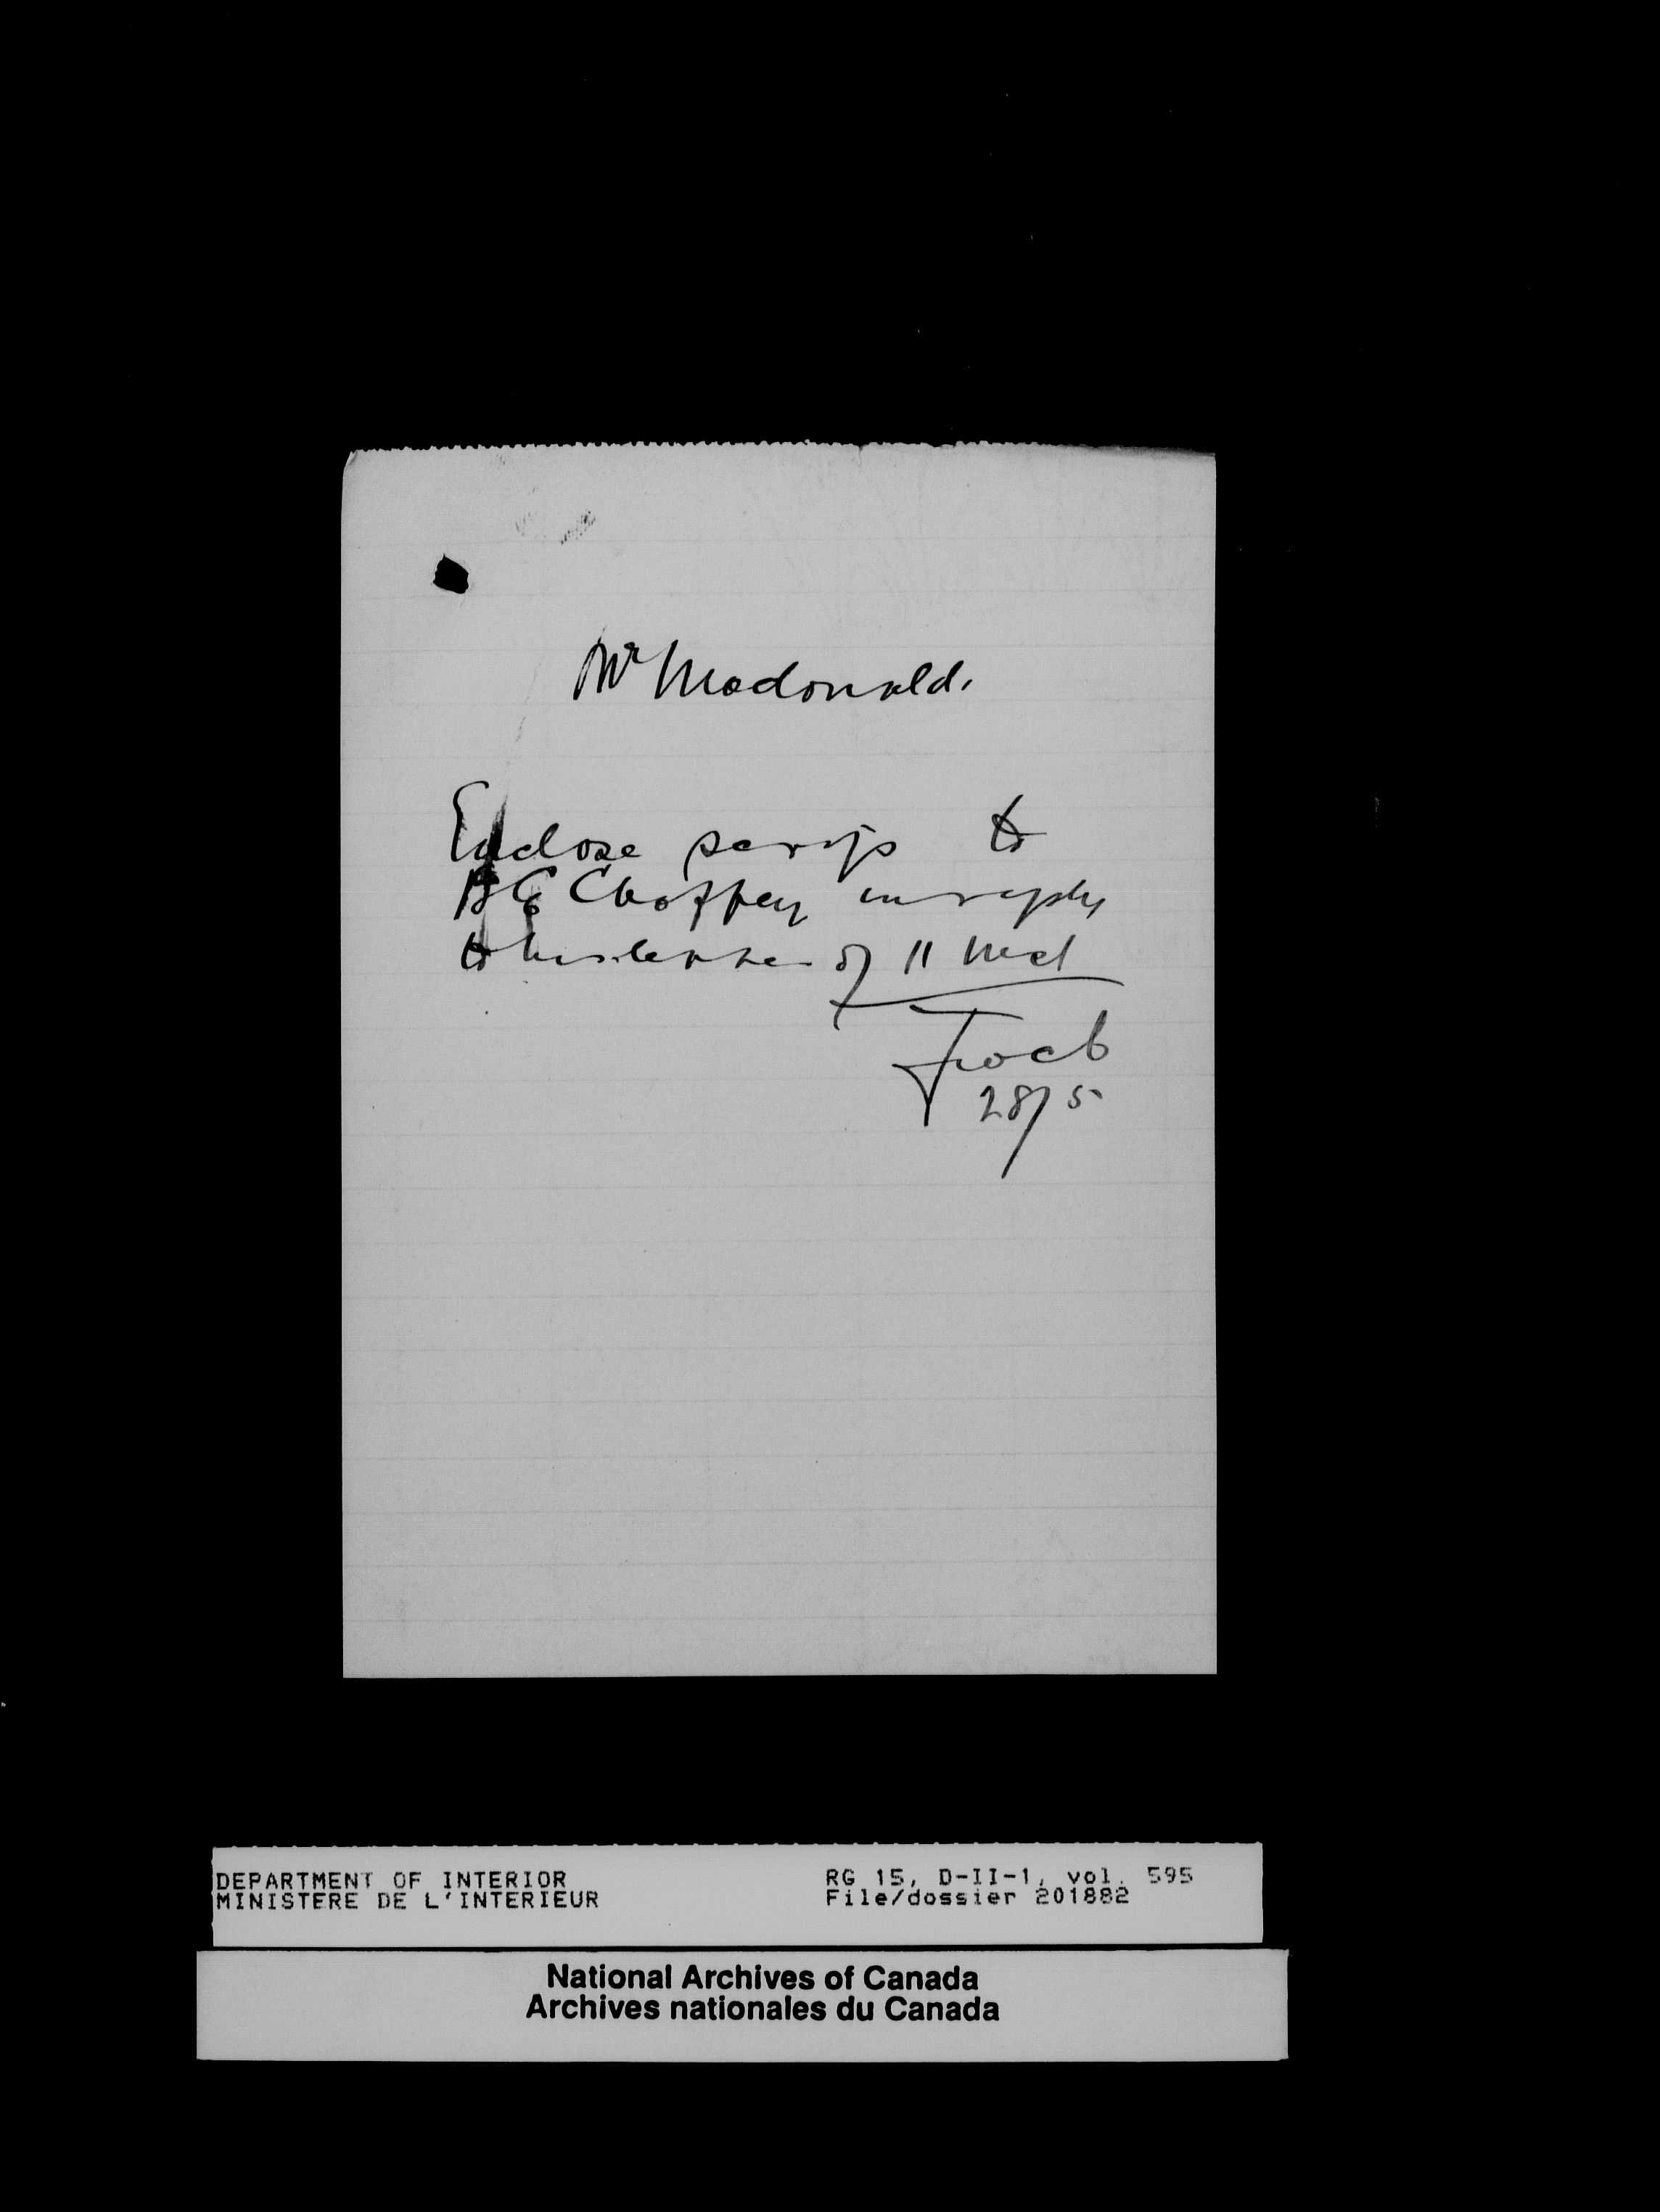 Mr Macdonald.
Enclose scrip to
B C Chaffey in reply
to his letter of 11 Inst
28/5
DEPARTMENT OF INTERIOR
MINISTERE DE L'INTERIEUR
RG 15, D-II-1, vol. 595
File/dossier 201882
National Archives of Canada
Archives nationales du Canada